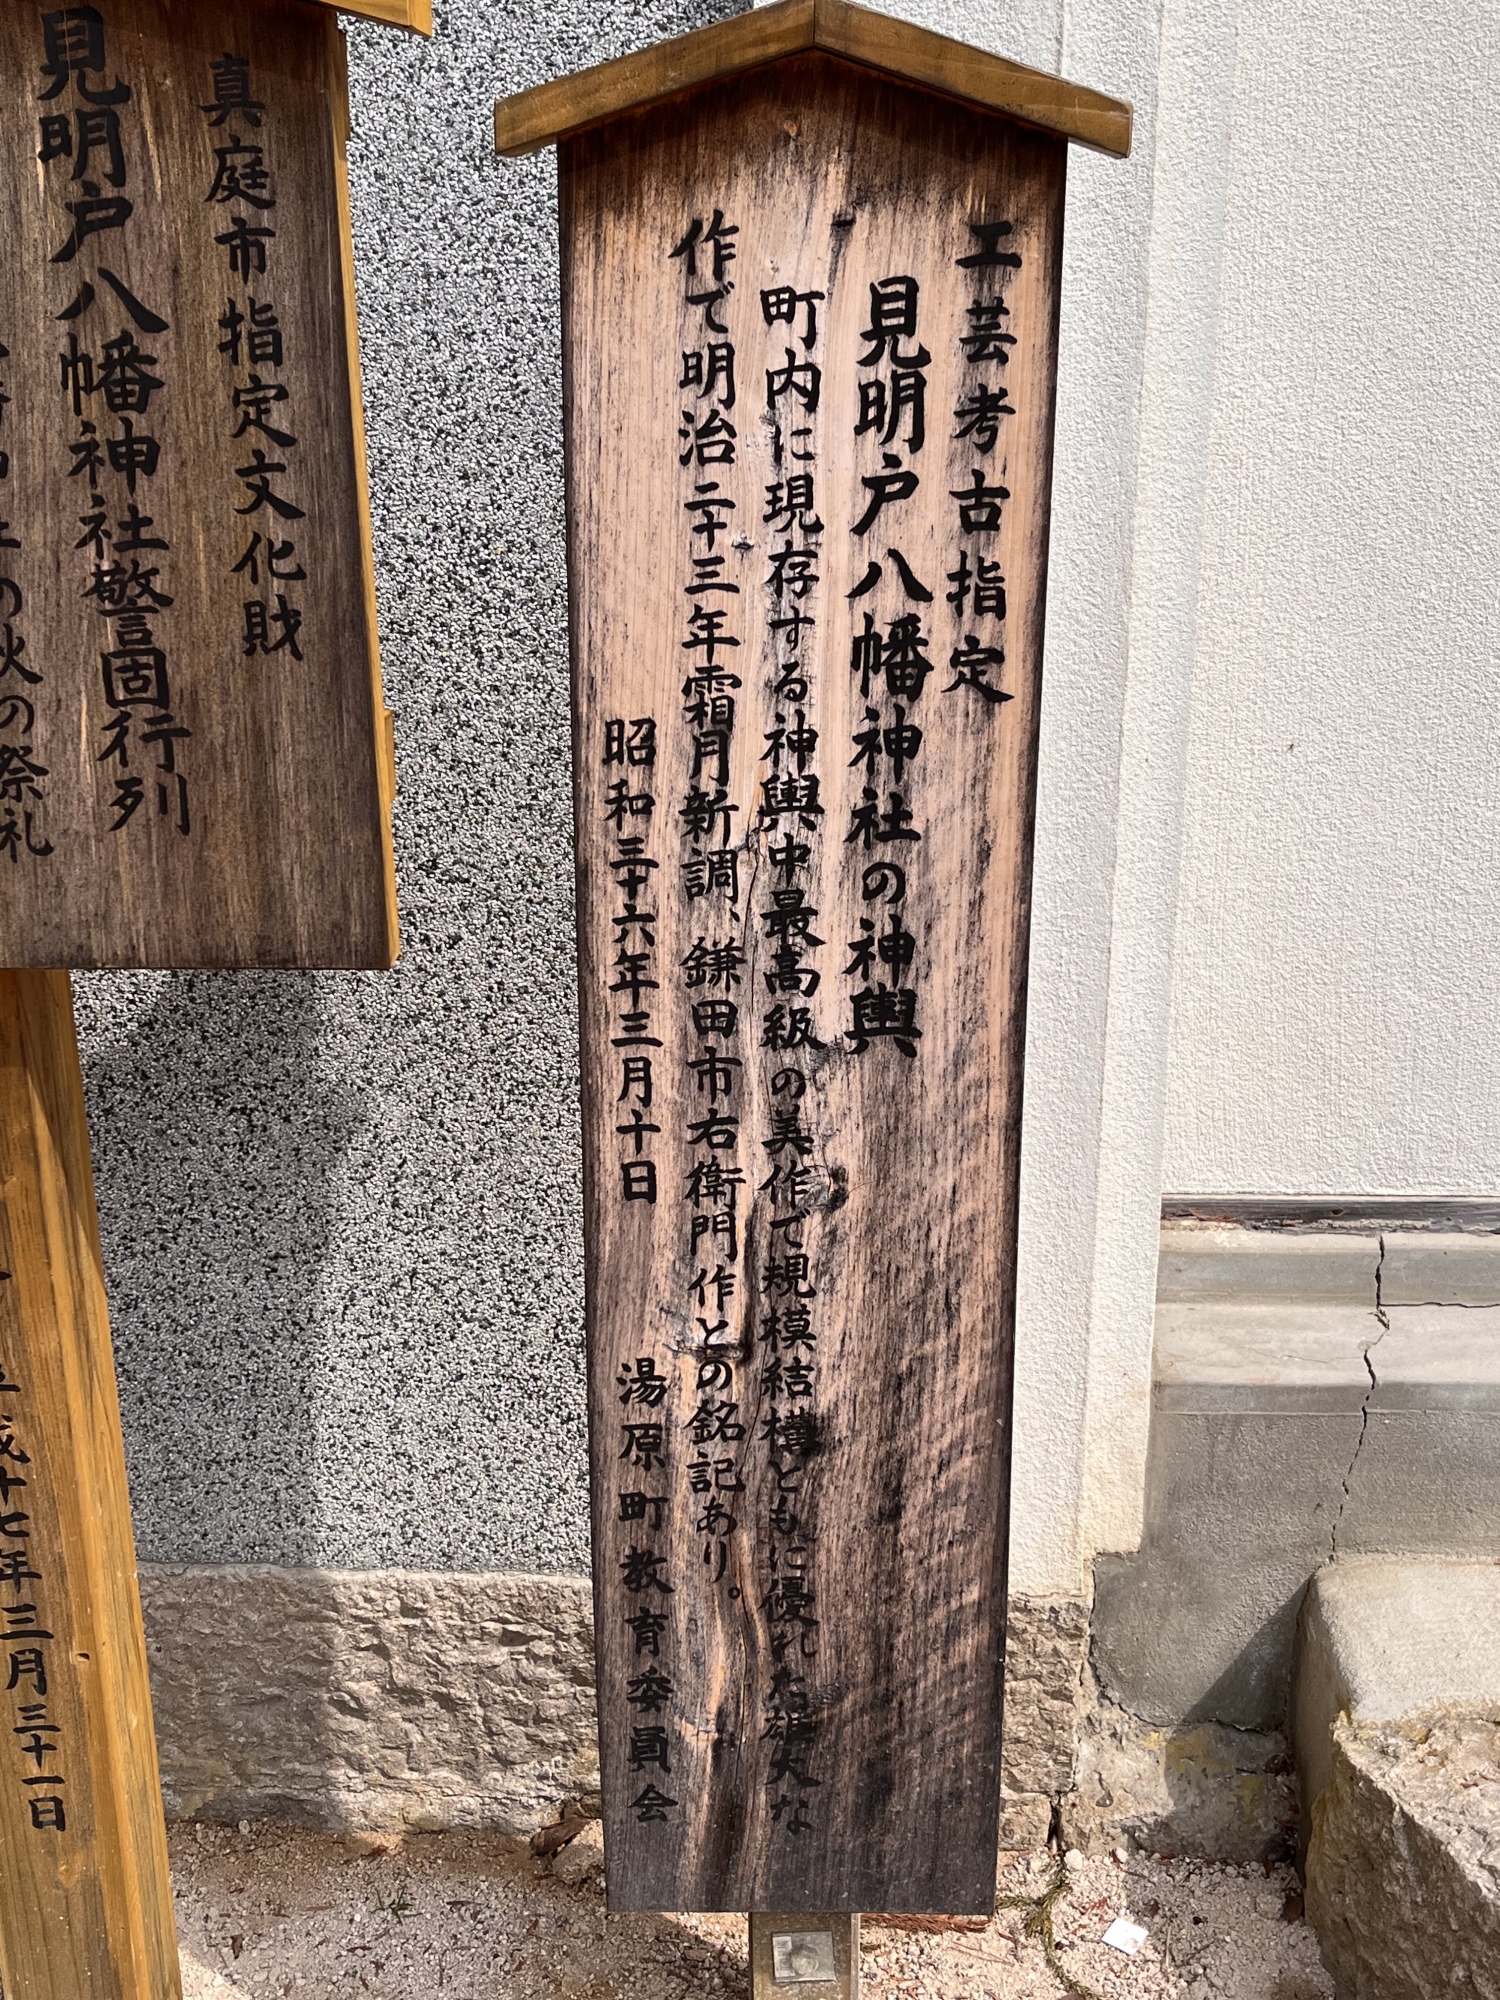 工芸考古指定
見明戸八幡神社の神輿
町内に現存する神輿中最高級の美作で規模結構ともに優れた雄大な
作で明治二十三年霜月新調、鎌田市右衛門作との銘記あり。
昭和三十六年三月十日 湯原町教育委員会
真庭市指定文化財
見明戸八幡神社警固行列
の秋の祭礼
成十七年三月三十一日